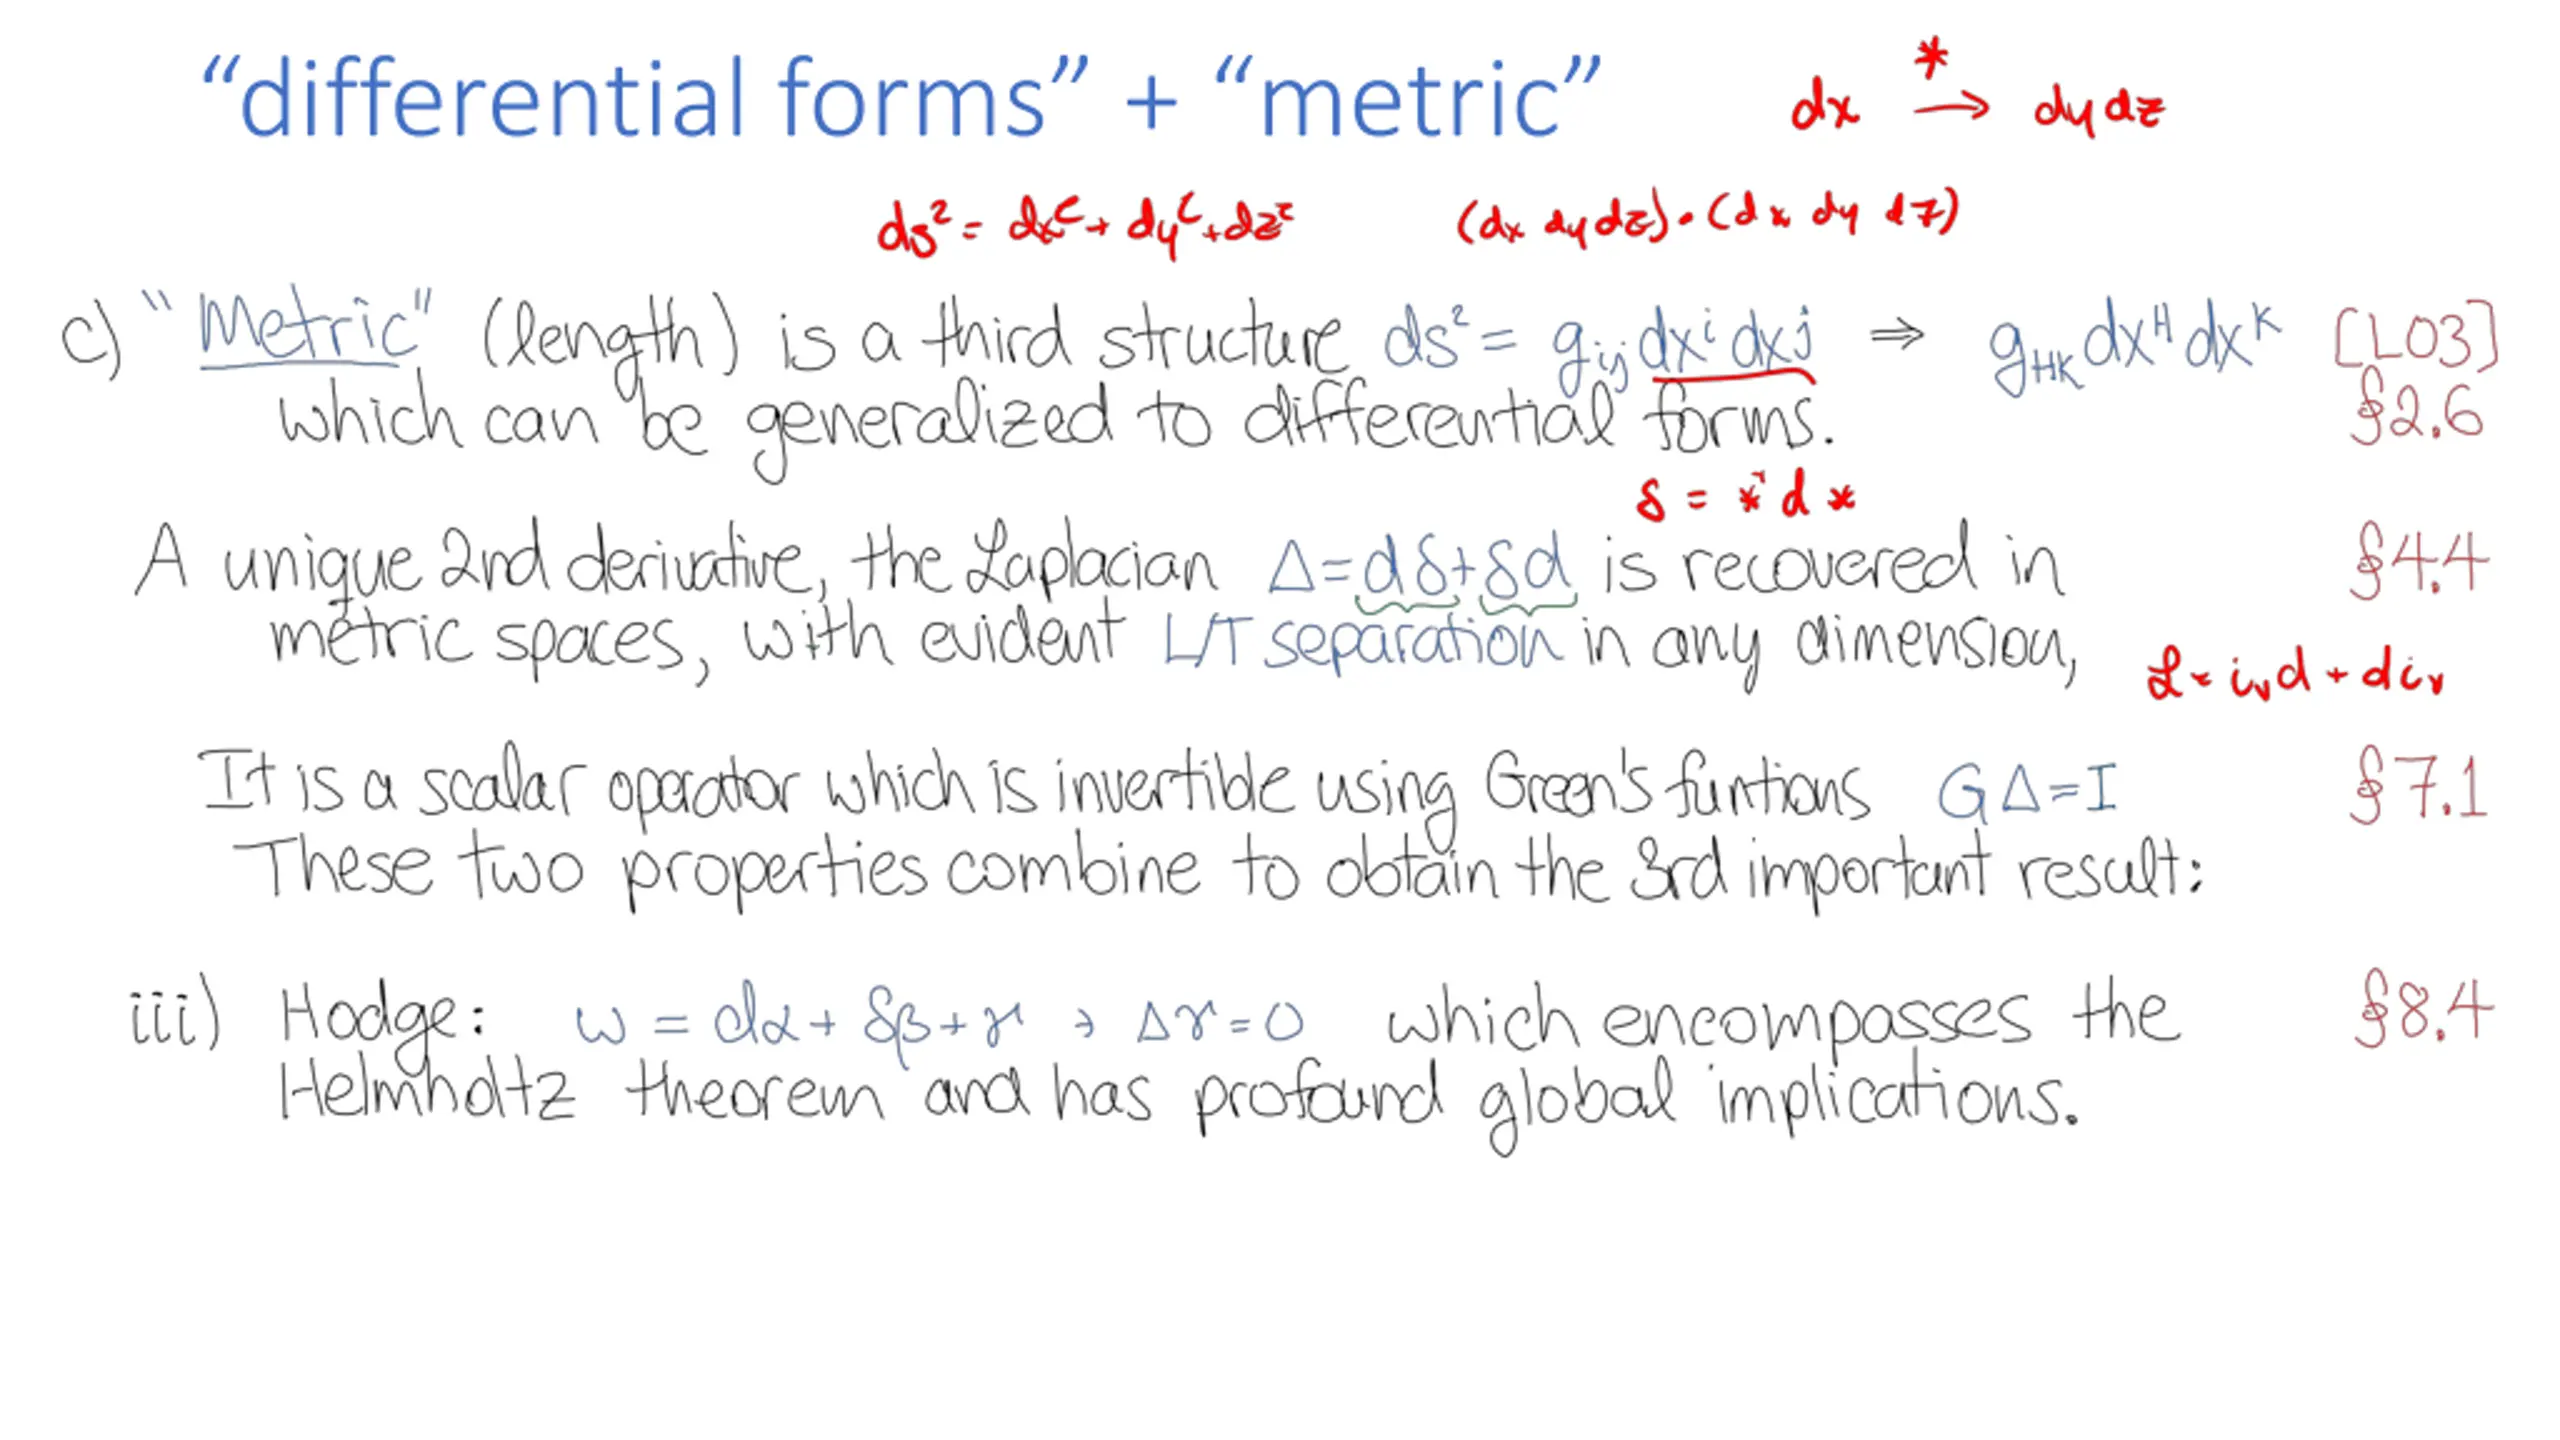 “differential forms” + “metric”
dx *→ dy dz
ds² = dx² + dy² + dz²
(dx dy dz) · (dx dy dz)
c) "Metric" (length) is a third structure ds² = gᵢⱼ dxⁱ dxʲ ⇒ g_HK dx^H dx^K [L03]
which can be generalized to differential forms. §2.6
δ = *⁻¹ d *
A unique 2nd derivative, the Laplacian Δ=dδ+δd is recovered in §4.4
metric spaces, with evident L/T separation in any dimension,
ℒ = iᵥd + d iᵥ
It is a scalar operator which is invertible using Green's funtions GΔ=I §7.1
These two properties combine to obtain the 3rd important result:
iii) Hodge: ω = dα + δβ + γ , Δγ = 0 which encompasses the §8.4
Helmholtz theorem and has profound global implications.